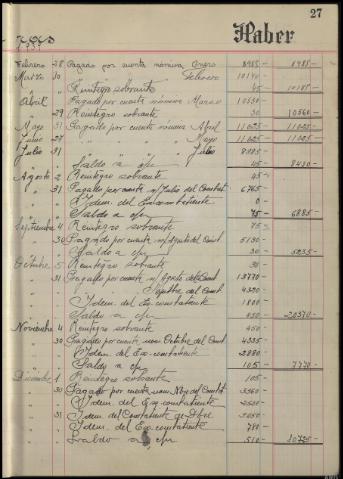 27
Haber
Febrero 28 Pagado por cuenta nómina Enero 8985- 8985-
Marzo 10 " " " " Febrero 10140-
" " Reintegro sobrante 45- 10185-
Abril Pagado por cuenta nómina Marzo 10530-
" 29 Reintegro sobrante 30 10560-
Mayo 31 Pagado por cuenta nómina Abril 11025- 11025-
Junio " " " " Mayo 11025- 11025-
Julio 31 " " " Julio
" " Saldo a c/n 45 8430-
Agosto 2 Reintegro sobrante 45-
" 31 Pagado por cuenta n/ Julio del Combat 6765
" " Idem. del Excombatiente 0-
" " Saldo a c/n 75 6885-
Septiembre 4 Reintegro sobrante 75-
" 30 Pagado por cuenta n/ Agosto del Comb. 5130-
" " Saldo a c/n 30 5235-
Octubre 5 Reintegro sobrante 30-
" 31 Pagado por cuenta n/ Agosto del Comb. 13770-
" " " " Septbre del Comb.
" " Idem del Ex-combatiente 1800-
" " Saldo a c/n 450 -20370-
Noviembre 4 Reintegro sobrante 450-
" 30 Pagado por cuenta nom. Octubre del Comb. 4335-
" " Idem. del Ex-combatiente 2880-
" " Saldo a c/n 105- 7770-
Diciembre 1 Reintegro sobrante 105-
" 30 Pagado por cuenta nom. Nbre del Combat
" " Idem. del Ex combatiente
" 31 Idem. del Combatiente de Dbre
" " Idem. del Ex combatiente
" " Saldo a c/n 510-